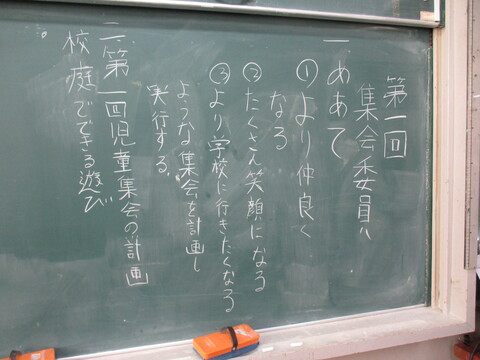 第一回
集会委員会
一、めあて
①より仲良く
なる
②たくさん笑顔になる
③より学校に行きたくなる
ような集会を計画し
実行する。
二、第一回児童集会の計画
校庭でできる遊び